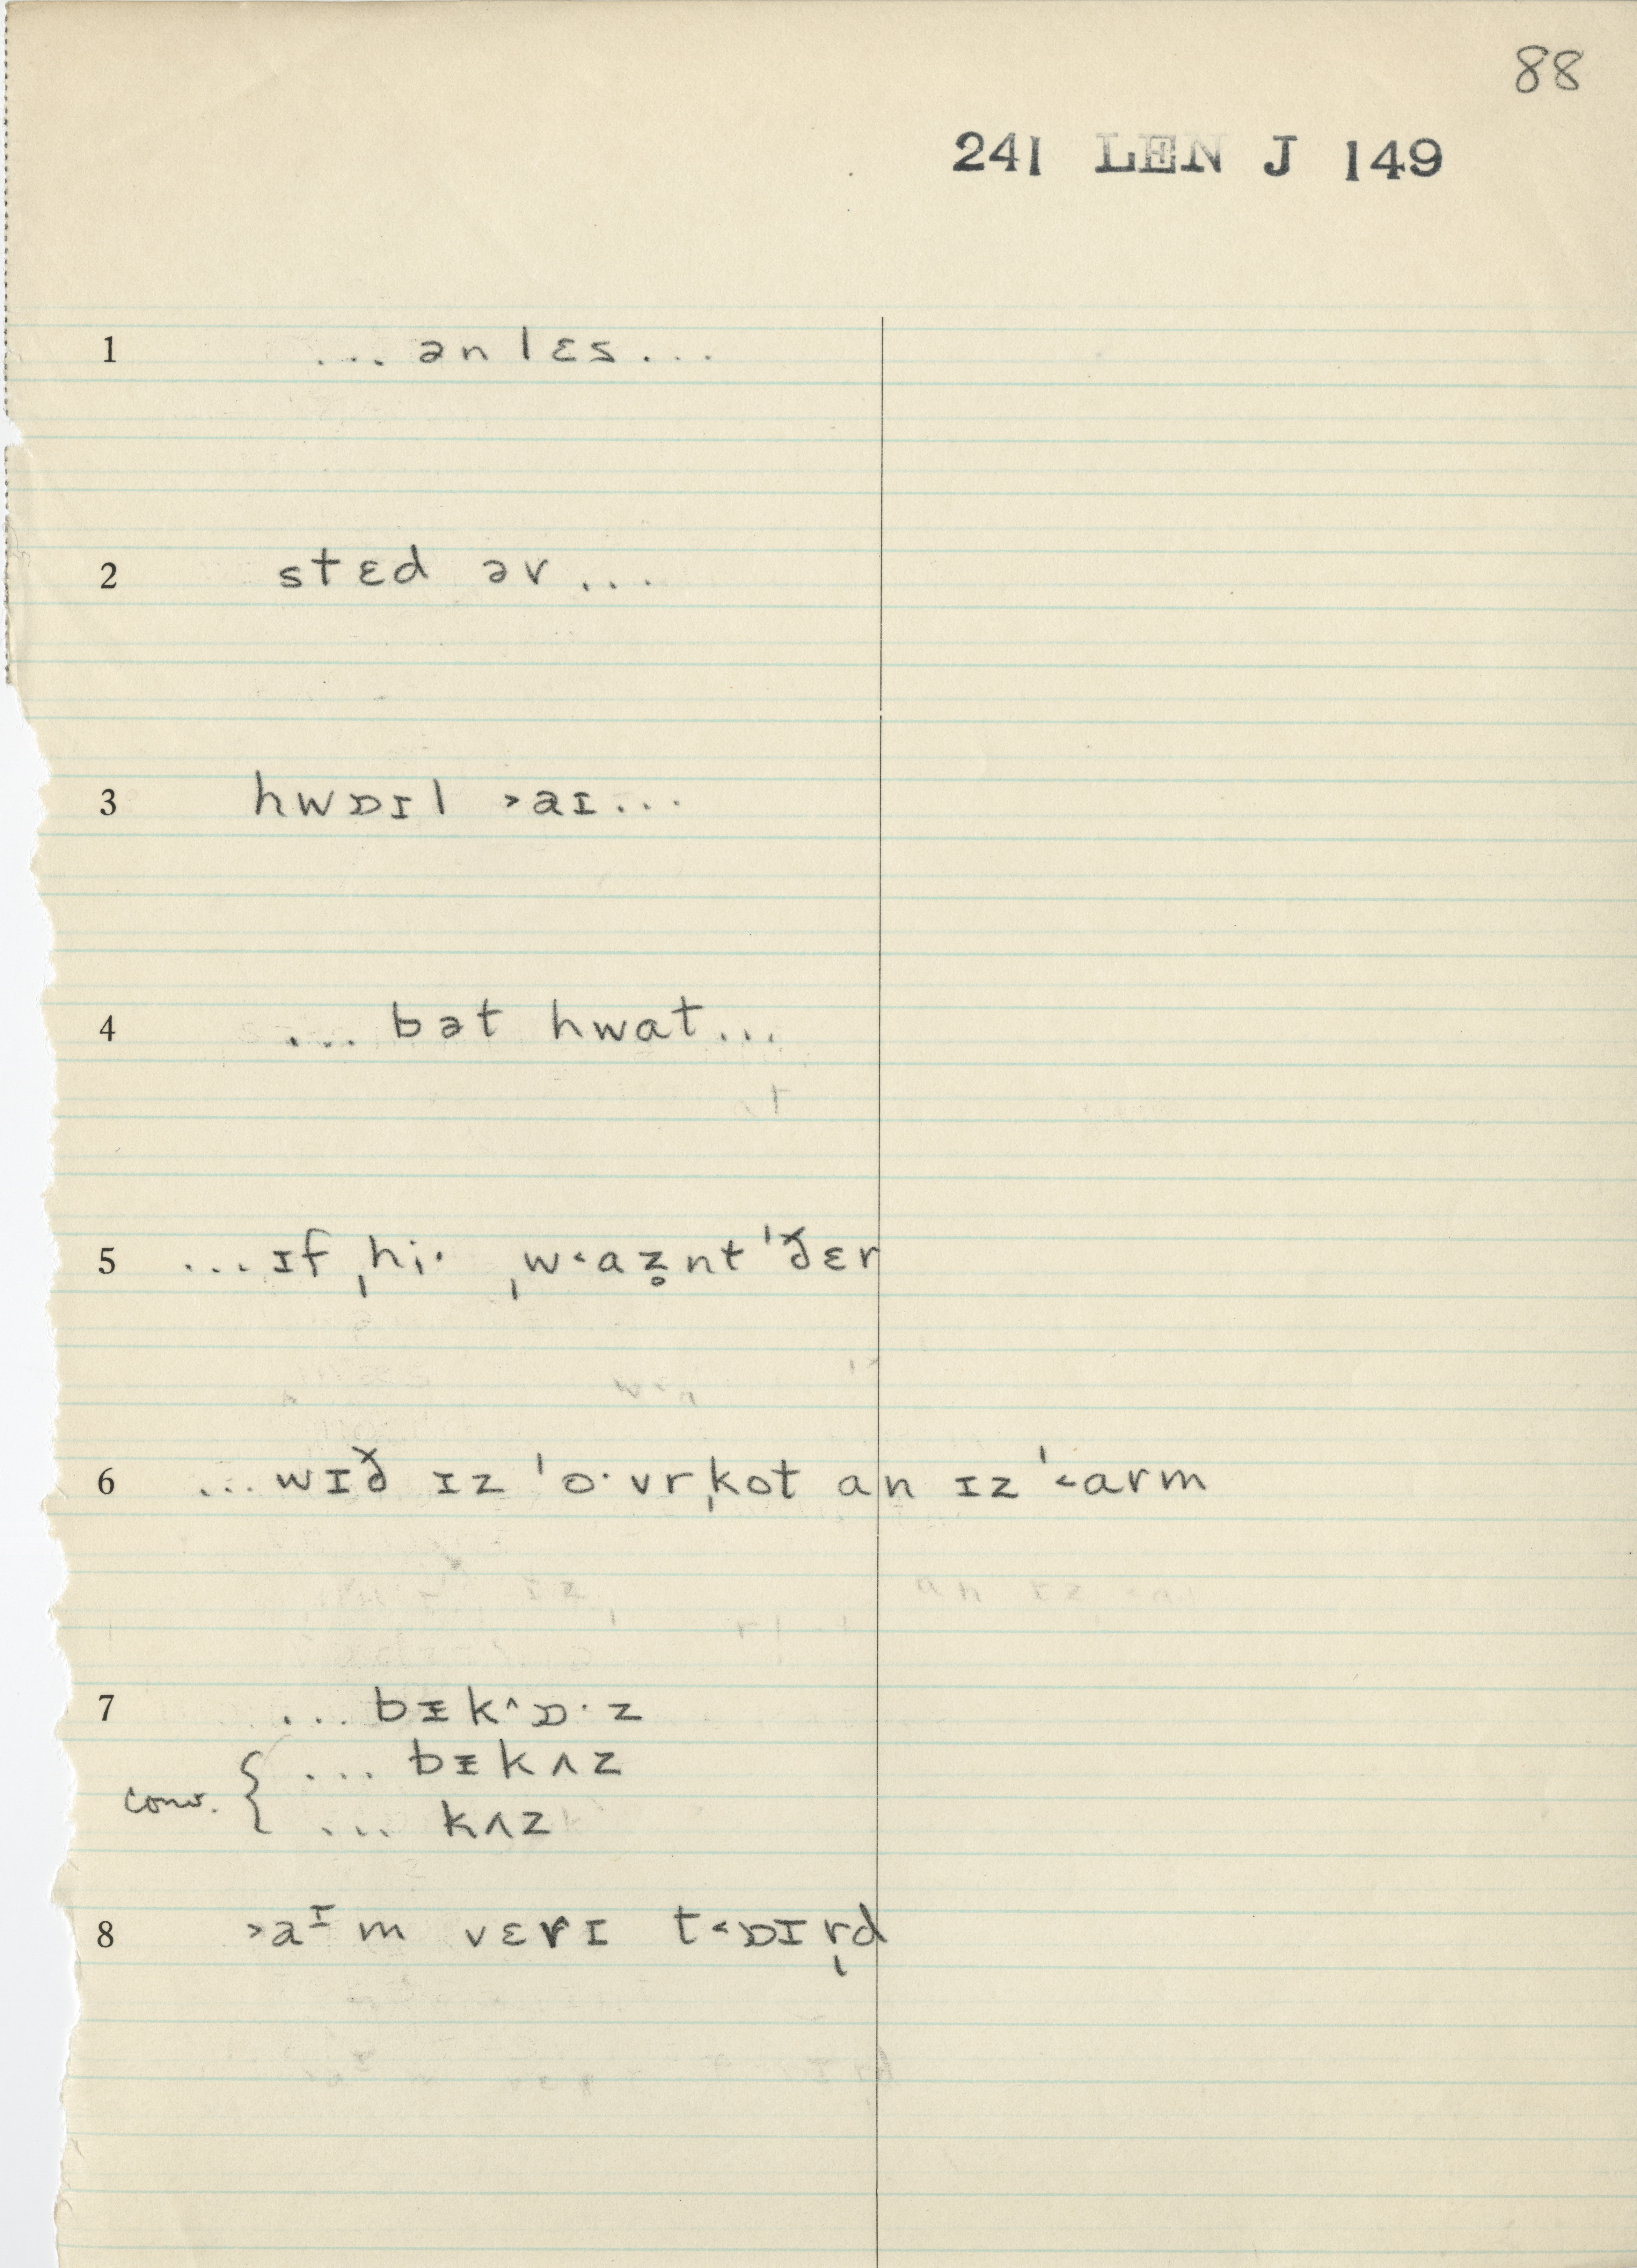 88
241 LEN J 149
1 ... ən lɛs...
2 stɛd əv...
3 hwɒɪl ˃aɪ...
4 ... bət hwat...
5 ...ɪf ˌhi· ˌw˂az̥nt ˈðɛr
6 ...wɪð ɪz ˈo·vrˌkot an ɪz ˈ˂arm
7 ... bᵻk^ɒ·z
... bᵻkʌz
conv. { ... kʌz
8 ˃aᶦm vɛrɪ t˂ɒɪr̩d